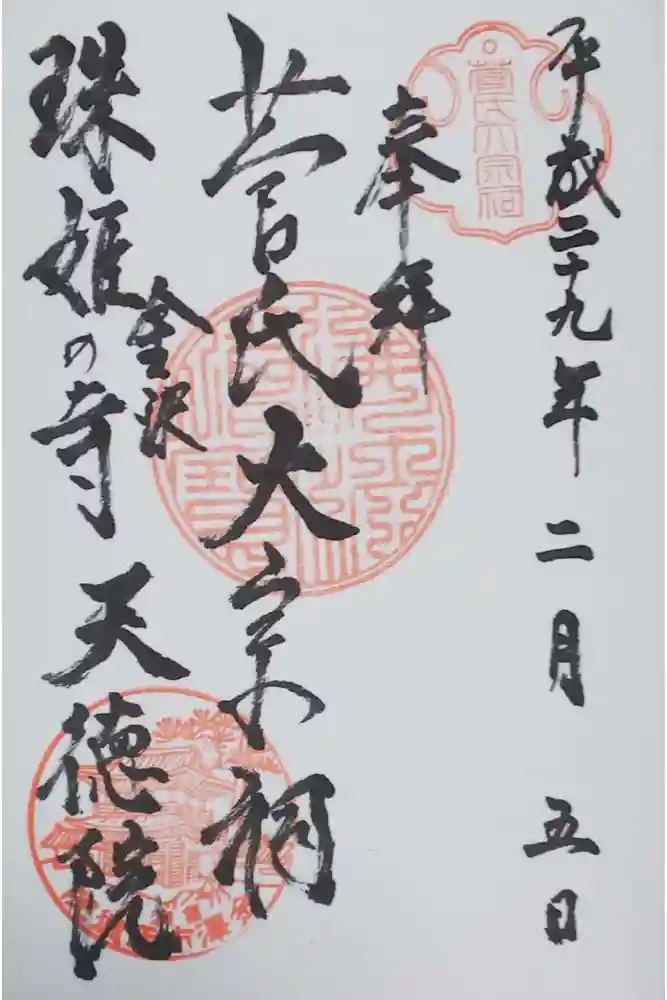 平成二十九年二月五日
奉拝
菅氏大宗祠
金沢
珠姫の寺 天徳院
菅氏大宗祠